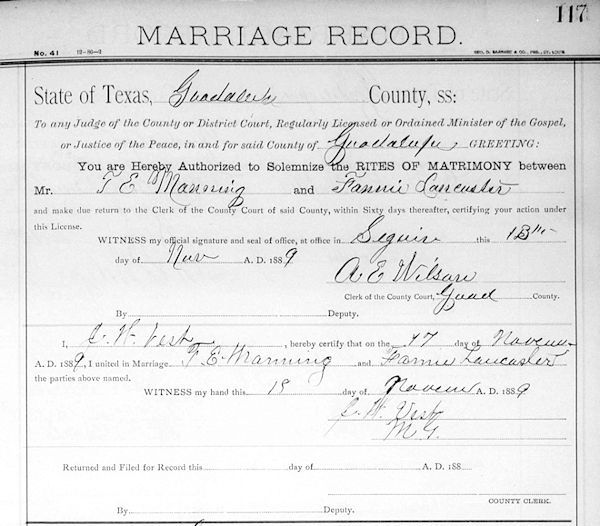 117
MARRIAGE RECORD.
No. 41 12-86-2 GEO. D. BARNARD & CO., PRS., ST. LOUIS
State of Texas, Guadalupe County, ss:
To any Judge of the County or District Court, Regularly Licensed or Ordained Minister of the Gospel,
or Justice of the Peace, in and for said County of Guadalupe, GREETING:
You are Hereby Authorized to Solemnize the RITES OF MATRIMONY between
Mr. T E Manning and Fannie Lancaster
and make due return to the Clerk of the County Court of said County, within Sixty days thereafter, certifying your action under
this License.
WITNESS my official signature and seal of office, at office in Seguin this 13th
day of Nov A. D. 1889
A E Wilson
Clerk of the County Court, Guad County.
By Deputy.
I, J. W. Vest, hereby certify that on the 17 day of Novem
A. D. 1889, I united in Marriage T. E. Manning and Fannie Lancaster
the parties above named.
WITNESS my hand this 18 day of Novem A. D. 1889
J. W. Vest
M. G.
Returned and Filed for Record this day of A. D. 188
COUNTY CLERK.
By Deputy.